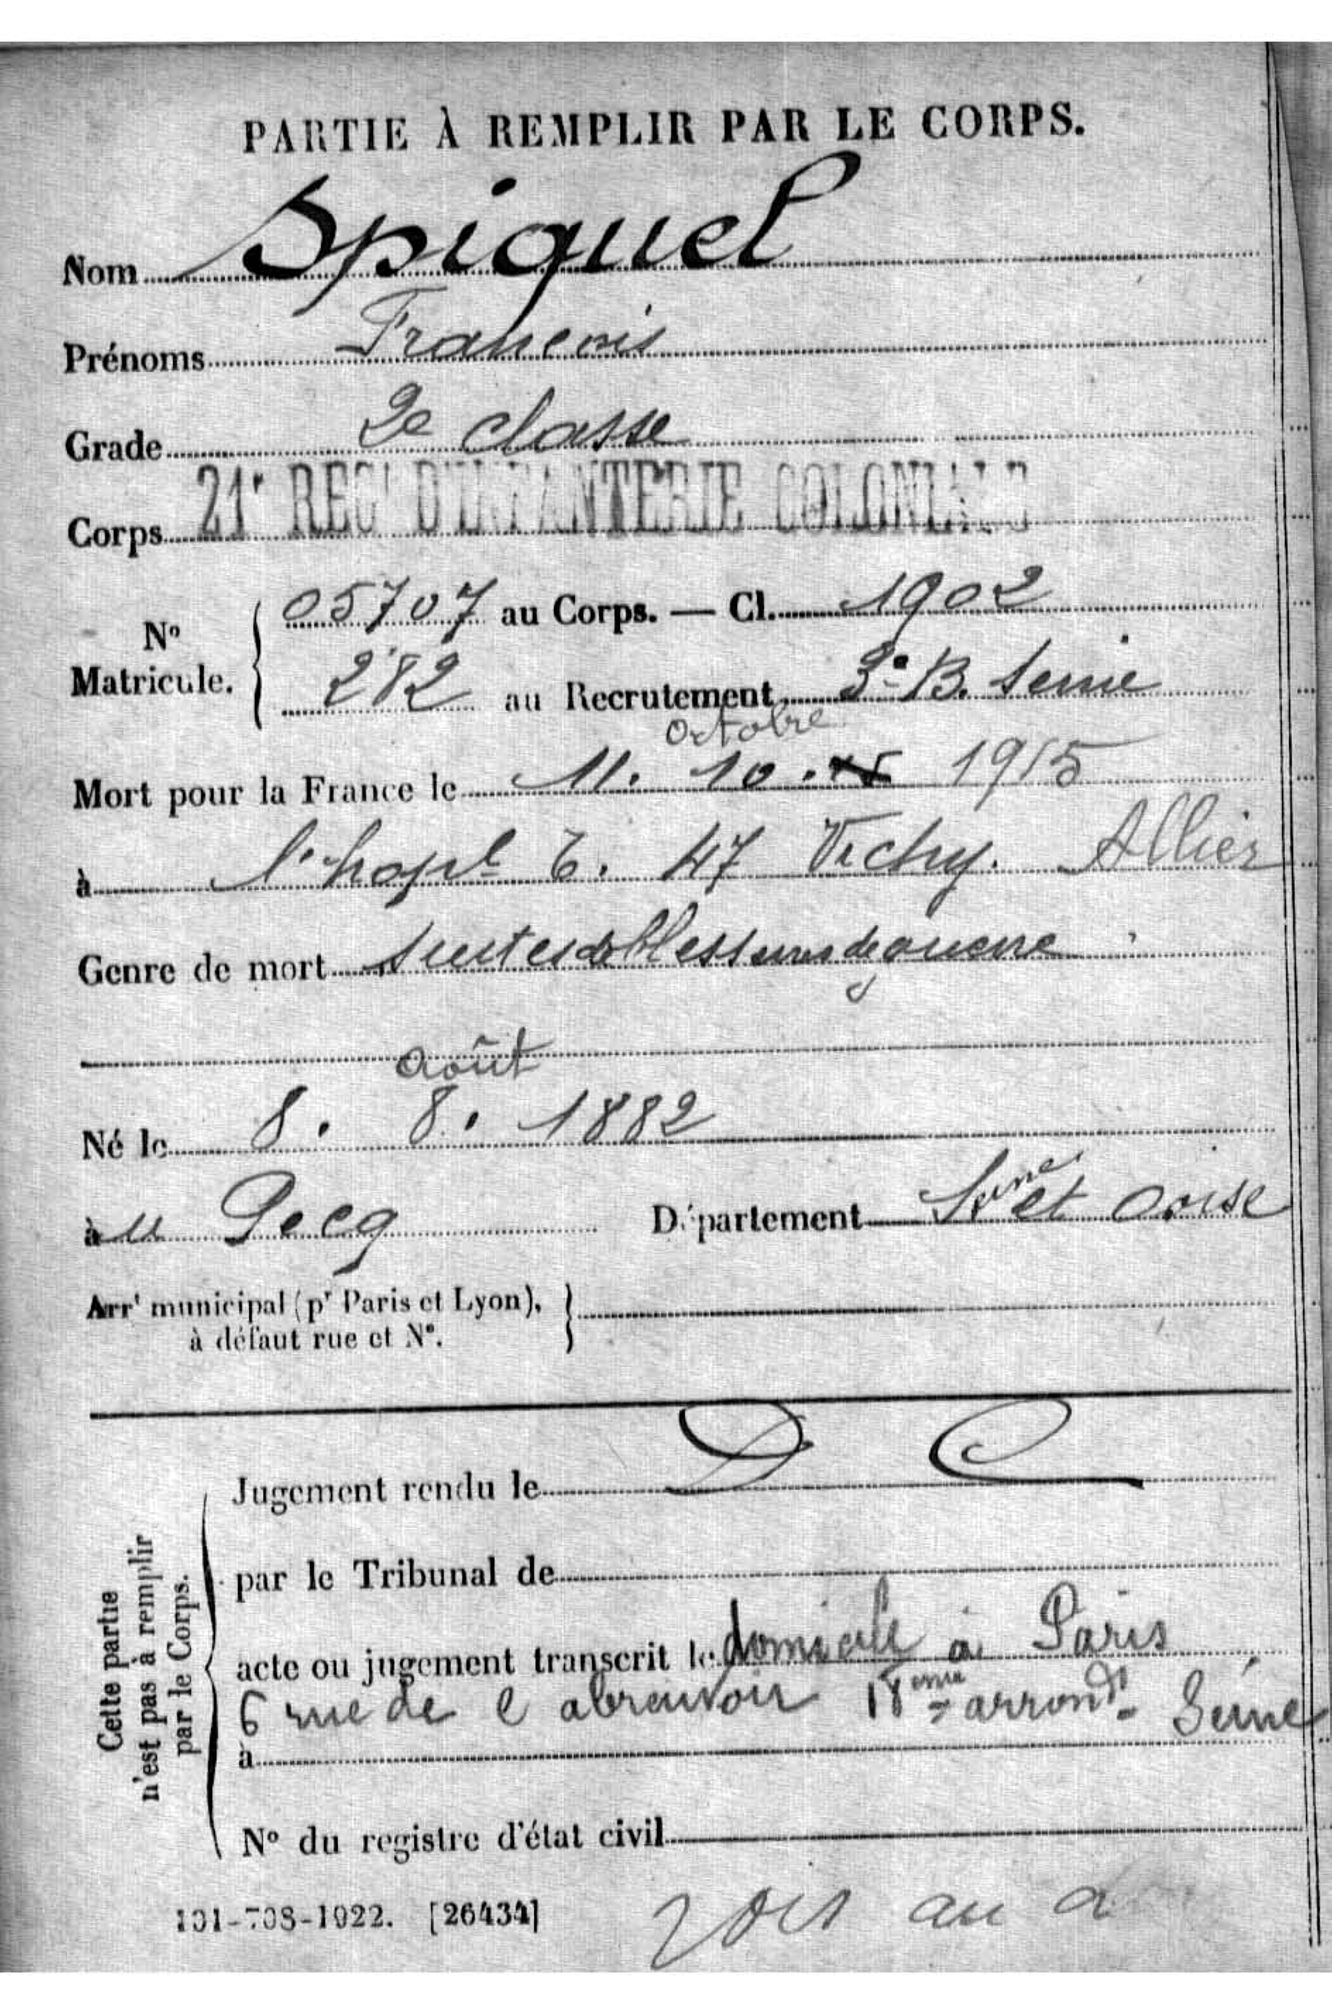 PARTIE À REMPLIR PAR LE CORPS.
Nom Spiquel
Prénoms François
Grade 2e classe
Corps 21e REGt D'INFANTERIE COLONIALE
05707 au Corps. — Cl. 1902
No
Matricule.
282 au Recrutement 3e B. Seine
Octobre
Mort pour la France le 11. 10. 1915
à l'hopl t. 47 Vichy. Allier
Genre de mort suites de blessures de guerre
août
Né le 8. 8. 1882
au Pecq Département Seine et Oise
Arrt municipal (pr Paris et Lyon),
à défaut rue et No.
Cette partie
n'est pas à remplir
par le Corps.
Jugement rendu le D C
par le Tribunal de
acte ou jugement transcrit le domicile à Paris
6 rue de l abreuvoir 18eme arrondt Seine
à
No du registre d'état civil
101-708-1922. [26434]
au